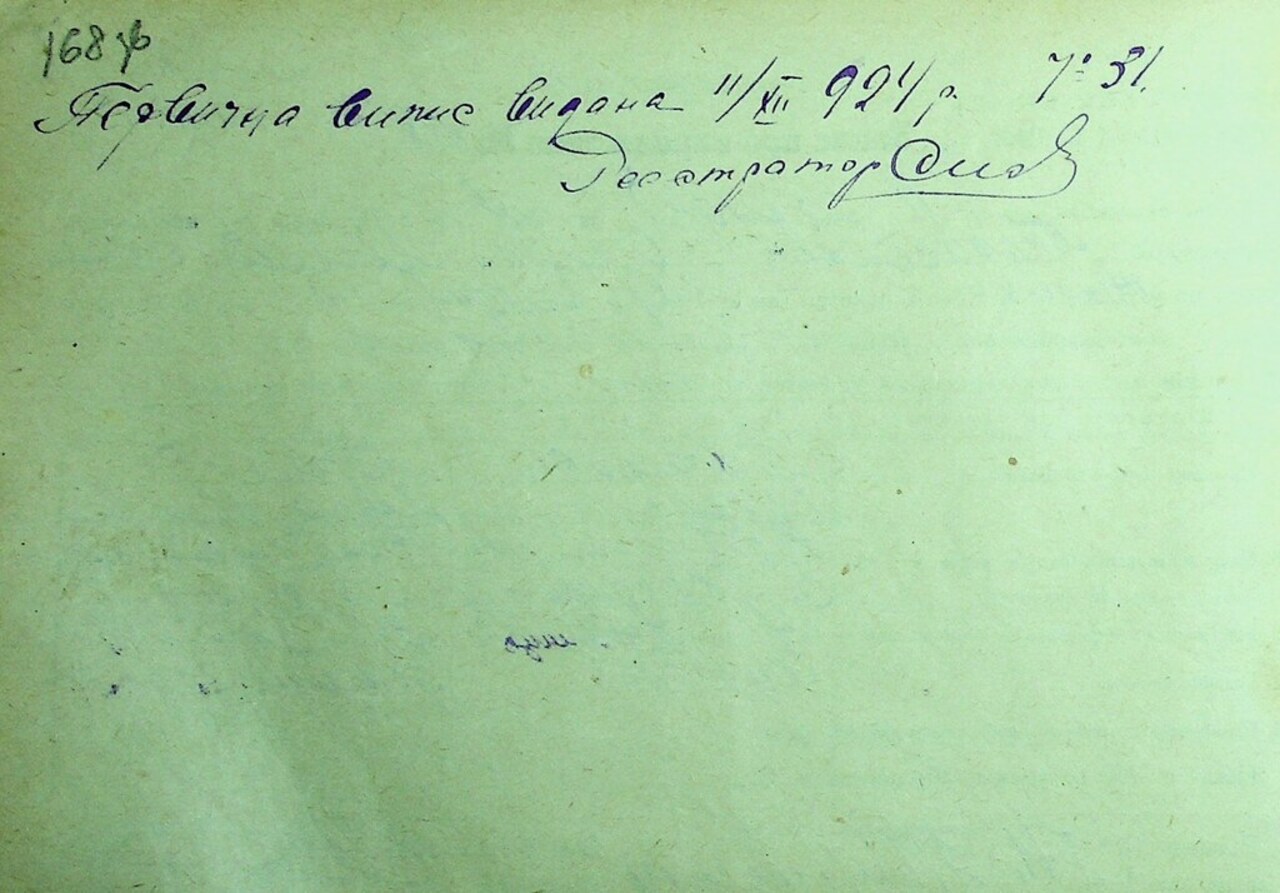 168 зв
Первична випис видана 11/XII 924 р. № 31.
Реєстратор